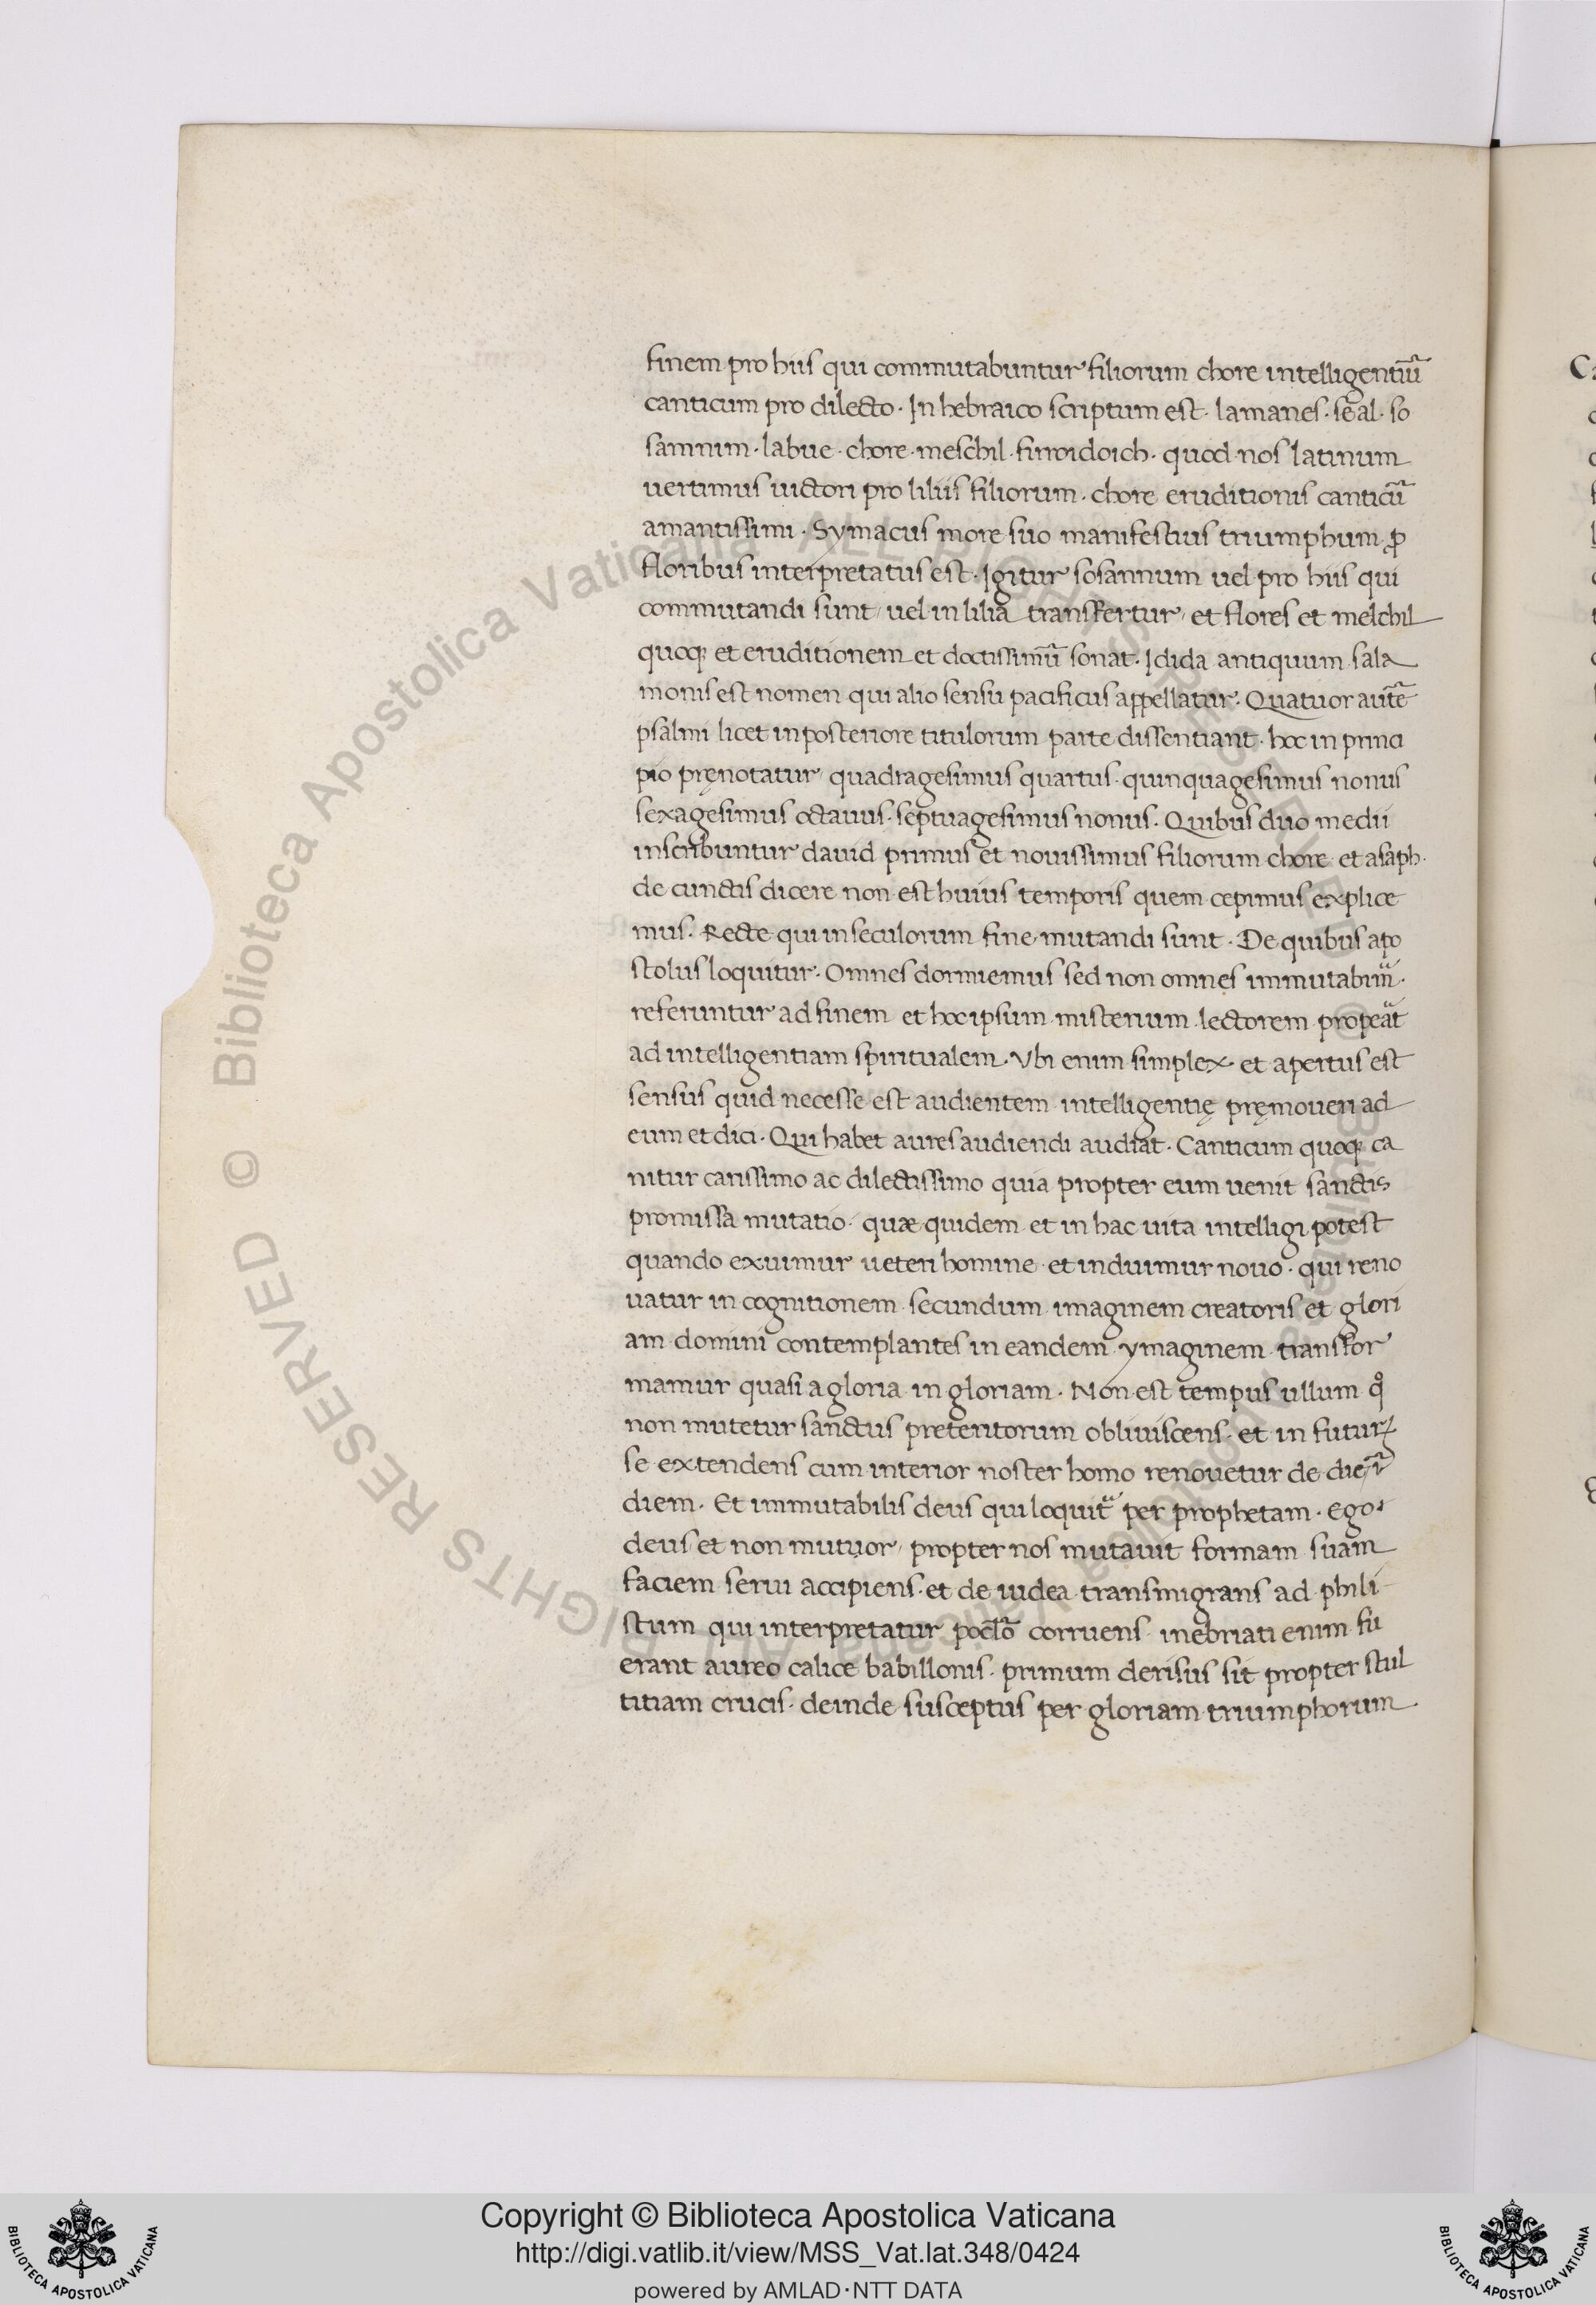 finem pro hiis qui commutabuntur filiorum chore intelligentiū
canticum pro dilecto · In hebraico scriptum est · lamanes · seal · so
samnim · labue · chore · meschil · sirroidoich · quod nos latinum
uertimus uictori pro liliis filiorum · chore eruditionis canticū
amantissimi · Symacus more suo manifestius triumphum ꝓ
floribus interpretatus est · Igitur sosannum uel pro hiis qui
commutandi sunt, uel in lilia transfertur, et flores et melchil
quoqꝫ et eruditionem et doctissimū sonat · Idida antiquum sala
monis est nomen qui alio sensu pacificus appellatur · Quatuor autē
psalmi licet in posteriore titulorum parte dissentiant · hoc in princi
pio pręnotatur quadragesimus quartus · quinquagesimus nonus
sexagesimus octauus · septuagesimus nonus · Quibus duo medii
inscribuntur dauid primus et nouissimus filiorum chore et asaph ·
de cunctis dicere non est huius temporis quem cepimus explice
mus · Recte qui in seculorum fine mutandi sunt · De quibus apo
stolus loquitur · Omnes dormiemus sed non omnes immutabim̃ ·
referuntur ad finem et hoc ipsum misterium lectorem propeat
ad intelligentiam spiritualem · Vbi enim simplex et apertus est
sensus quid necesse est audientem intelligentię pręmoueri ad
eum et dici · Qui habet aures audiendi audiat · Canticum quoqꝫ ca
nitur carissimo ac dilectissimo quia propter eum uenit sanctis
promissa mutatio · quæ quidem et in hac uita intelligi potest
quando exuimur ueteri homine et induimur nouo · qui reno
uatur in cognitionem secundum imaginem creatoris et glori
am domini contemplantes in eandem ymaginem transfor
mamur quasi a gloria in gloriam · Non est tempus ullum qͦ
non mutetur sanctus preteritorum obliuiscens · et in futurꝝ
se extendens cum interior noster homo renouetur de die ī
diem · Et immutabilis deus qui loquit᷑ per prophetam · ego
deus et non mutuor, propter nos mutauit formam suam
faciem serui accipiens · et de iudea transmigrans ad phili
stum qui interpretatur poclō corruens · inebriati enim fu
erant aureo calice babillonis · primum derisus sit propter stul
titiam crucis · deinde susceptus per gloriam triumphorum
Copyright © Biblioteca Apostolica Vaticana
http://digi.vatlib.it/view/MSS_Vat.lat.348/0424
powered by AMLAD·NTT DATA
BIBLIOTECA APOSTOLICA VATICANA
BIBLIOTECA APOSTOLICA VATICANA
© Biblioteca Apostolica Vaticana ALL RIGHTS RESERVED
© Biblioteca Apostolica Vaticana ALL RIGHTS RESERVED